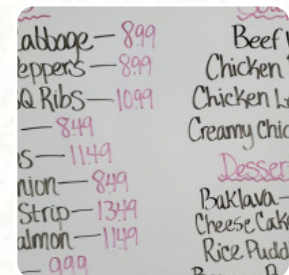 abbage — 8.99
eppers — 8.99
Q Ribs — 10.99
— 8.49
s — 11.49
nion — 8.49
Strip — 13.49
almon — 11.49
— 9.99
Beef
Chicken
Chicken L
Creamy Chic
Desser
Baklava —
Cheese Cak
Rice Pudd